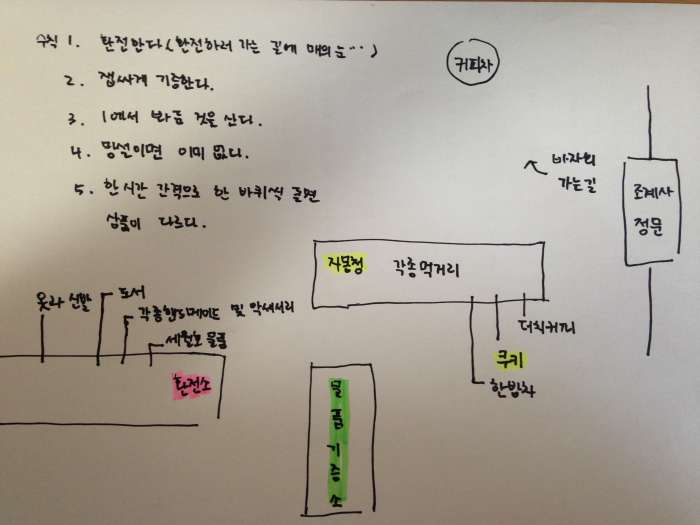 수칙 1. 환전한다 (환전하러 가는 길에 매의 눈…)
2. 잽싸게 기증한다.
3. 1에서 봐둔 것을 산다.
4. 망설이면 이미 없다.
5. 한시간 간격으로 한 바퀴씩 돌면
상품이 다르다.
커피차
바자회
가는길
조계사
정문
자몽청 각종 먹거리
더치커피
쿠키
한방차
옷과 신발
도서
각종 핸드메이드 및 악세서리
세월호 물품
환전소
물품기증소